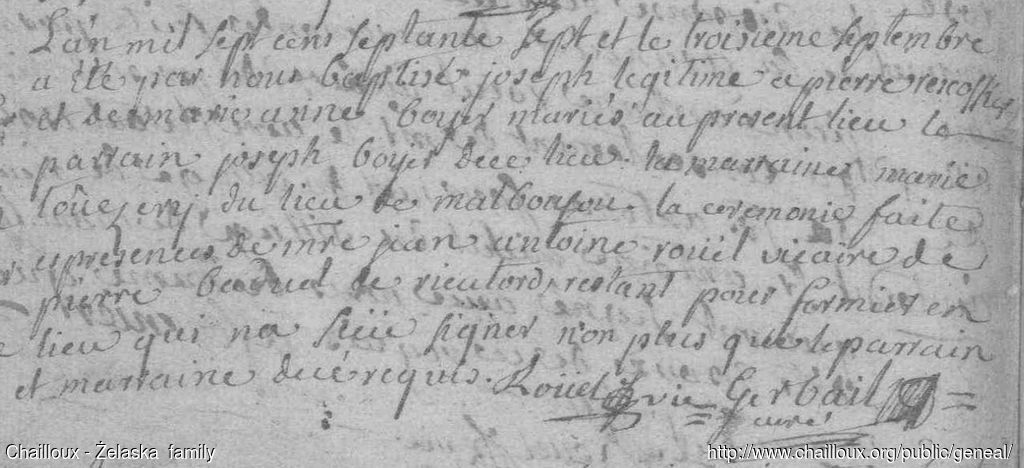 L'an mil sept cens septante sept et le troisieme septembre
a été par nous baptisé joseph legitime a pierre rescossier
et de marie anne boyer mariés au present lieu le
parrain joseph boyer de ce lieu. la marraine marie
du lieu de malbouzou. la ceremonie faite
en presences de mre jean antoine rouël vicaire de
pierre de rieutord, restant pour fermier en
lieu qui na seüe signer non plus que le parrain
et marraine de cé requis. Rouel vic Gerbail
curé
Chailloux - Żelaska family
http://www.chailloux.org/public/geneal/